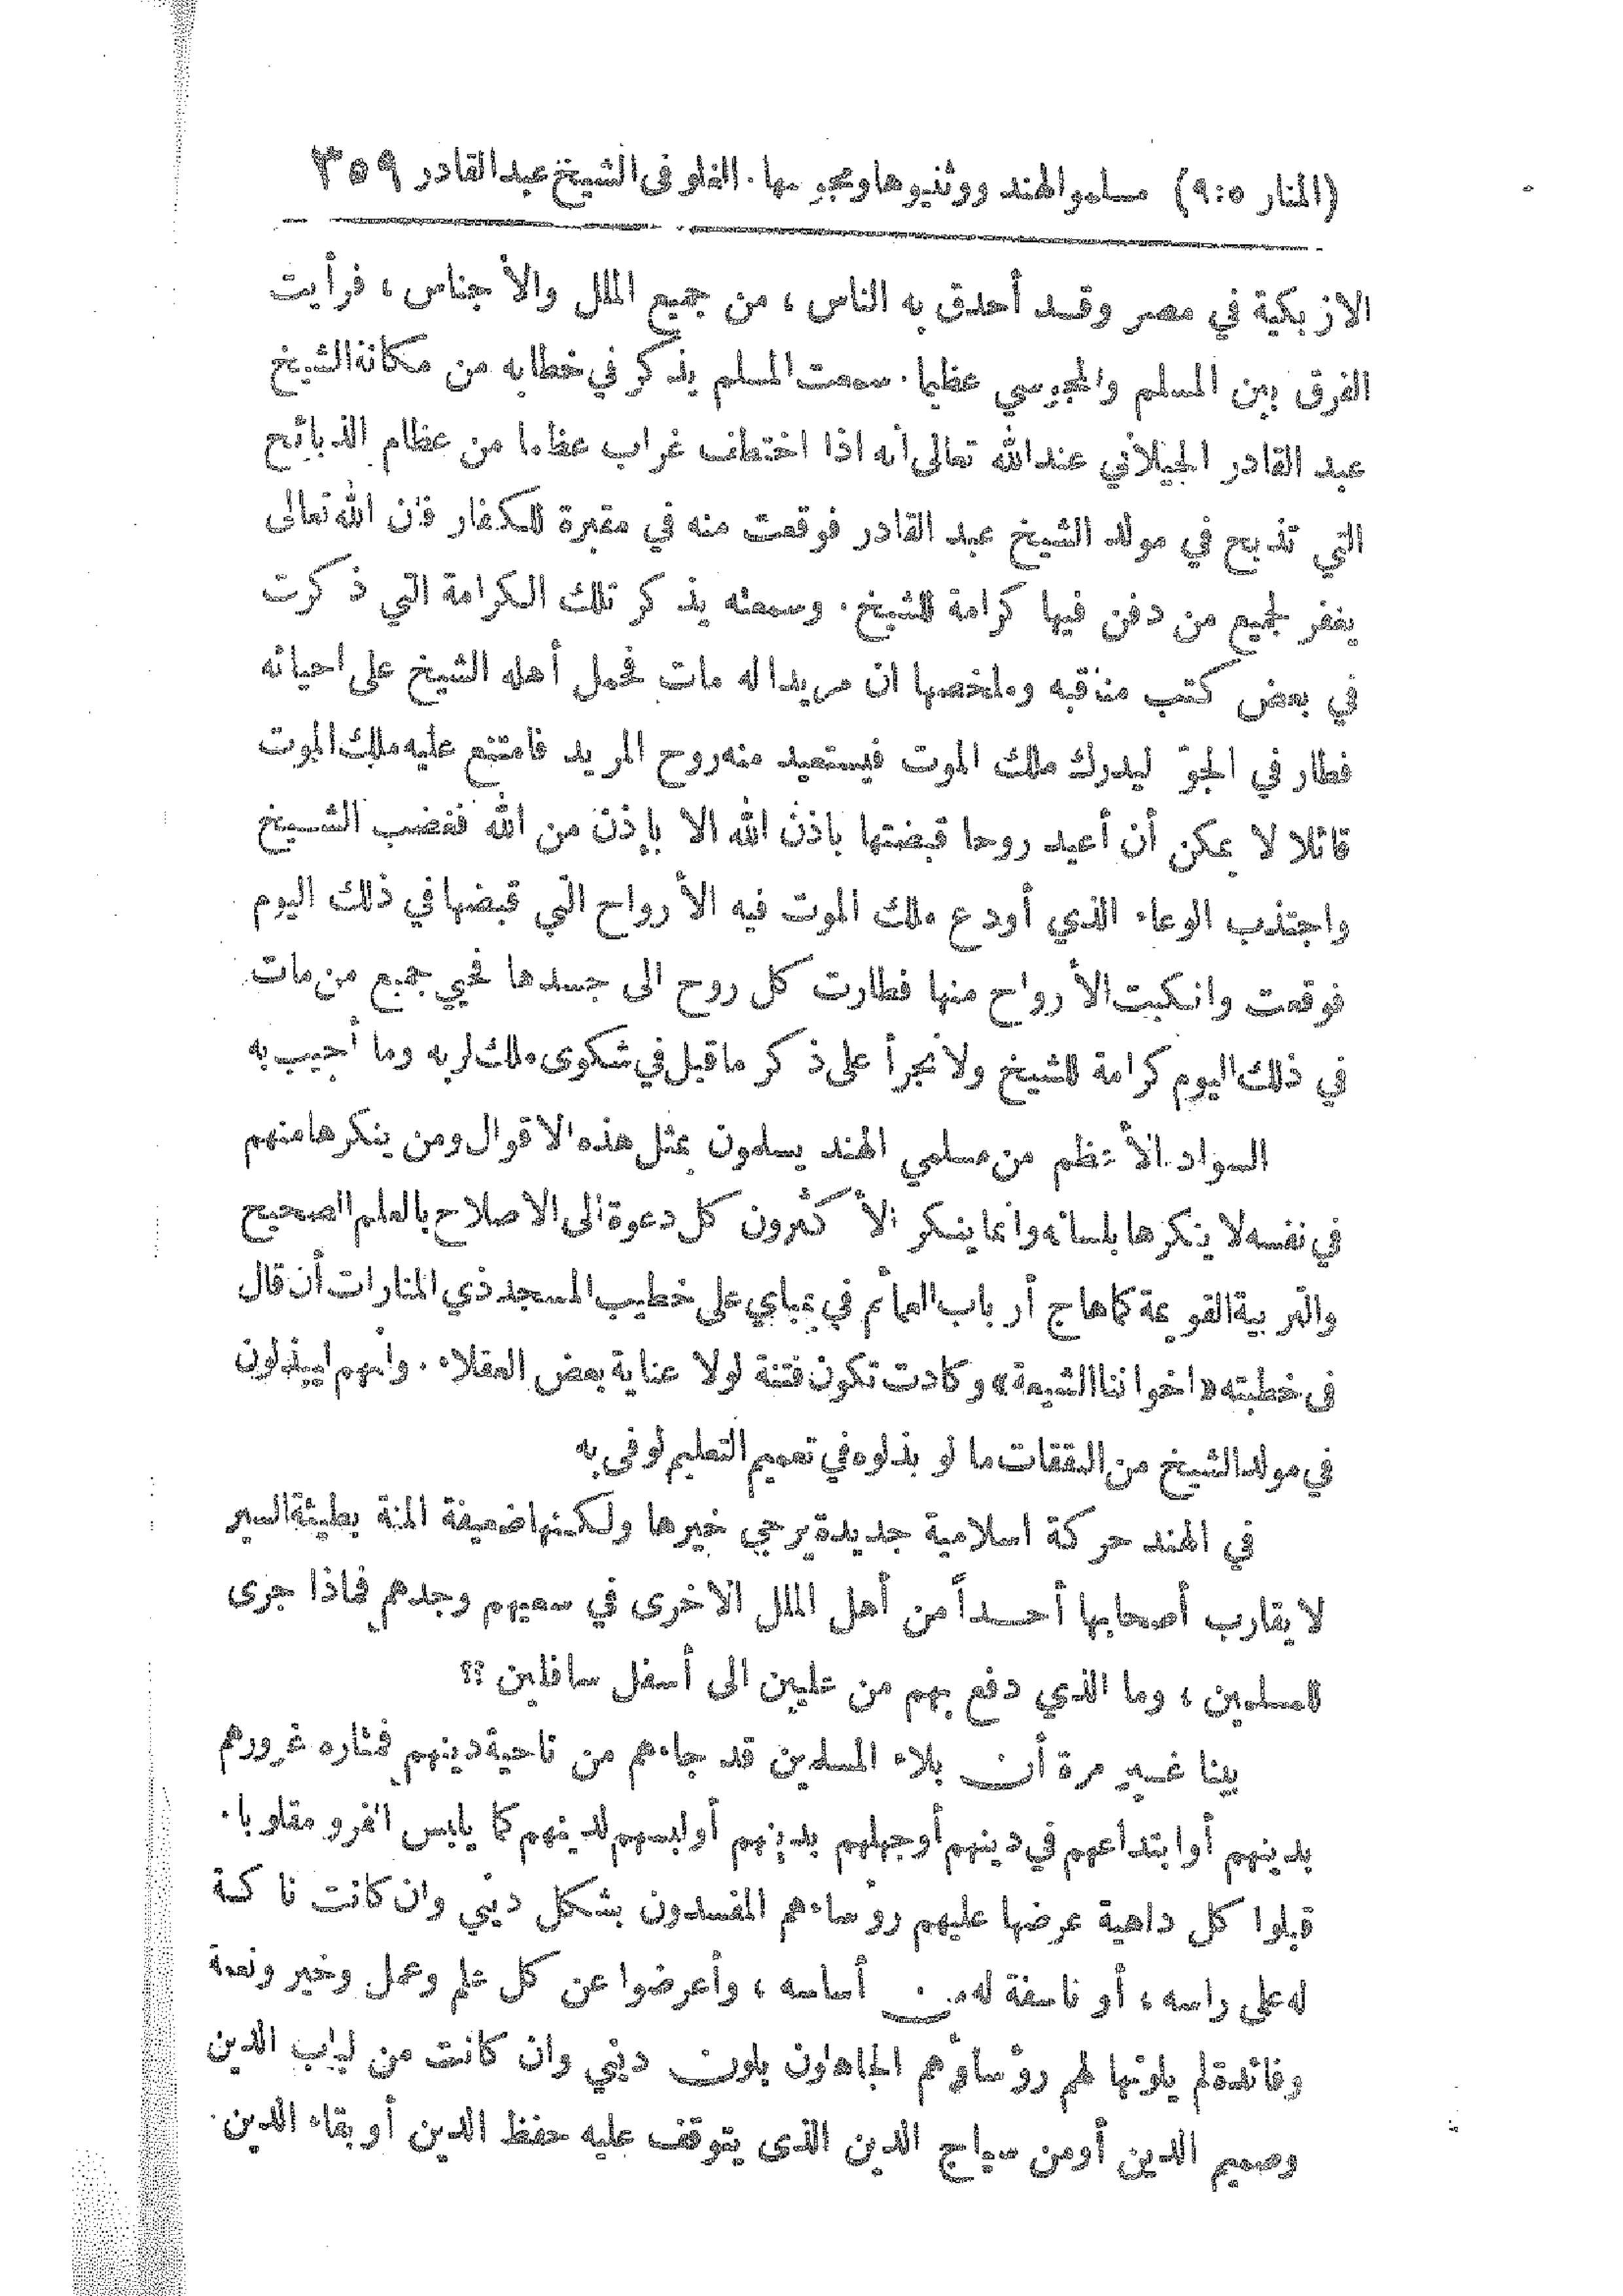 (المنار ٩:٥) مسلمو الهند ووثنيوها ومجوسها. الغلو فى الشيخ عبد القادر ٣٥٩
الازبكية في مصر وقد أحدق به الناس ، من جميع الملل والأجناس ، فرأيت
الفرق بين المسلم والمجوسي عظيما. سمعت المسلم يذكر في خطابه من مكانة الشيخ
عبد القادر الجيلاني عند الله تعالى أنه اذا اختطف غراب عظما من عظام الذبائح
التي تذبح في مولد الشيخ عبد القادر فوقعت منه في مقبرة للكفار فان الله تعالى
يغفر لجميع من دفن فيها كرامة للشيخ. وسمعته يذكر تلك الكرامة التي ذكرت
في بعض كتب مناقبه وملخصها ان مريدا له مات فحمل أهله الشيخ على احيائه
فطار في الجوّ ليدرك ملك الموت فيستعيد منه روح المريد فامتنع عليه ملك الموت
قائلا لا يمكن أن أعيد روحا قبضتها باذن الله الا بإذن من الله فغضب الشيخ
واجتذب الوعاء الذي أودع ملك الموت فيه الأرواح التي قبضها في ذلك اليوم
فوقعت وانكبت الأرواح منها فطارت كل روح الى جسدها فحيي جميع من مات
في ذلك اليوم كرامة للشيخ ولا نجرأ على ذكر ما قيل في شكوى ملك لربه وما أجيب به
السواد الأعظم من مسلمي الهند يسلمون بمثل هذه الاقوال ومن ينكرها منهم
في نفسه لا ينكرها بلسانه وانما ينكر الأكثرون كل دعوة الى الاصلاح بالعلم الصحيح
والتربية القويمة كما هاج أرباب العمائم في بمباي على خطيب المسجد ذي المنارات أن قال
فى خطبته «اخواننا الشيعة» وكادت تكون فتنة لولا عناية بعض العقلاء. وانهم ليبذلون
في مولد الشيخ من النفقات ما لو بذلوه في تعميم التعليم لوفى به
في الهند حركة اسلامية جديدة يرجى خيرها ولكنها ضعيفة المنة بطيئة السير
لا يقارب أصحابها أحداً من أهل الملل الاخرى في سعيهم وجدهم فماذا جرى
للمسلمين ، وما الذي دفع بهم من عليين الى أسفل سافلين ؟؟
بينا غير مرة أن بلاء المسلمين قد جاءهم من ناحية دينهم فمثاره غرورهم
بدينهم أو ابتداعهم في دينهم أو جهلهم بدينهم أو لبسهم لدينهم كما يلبس الفرو مقلوبا.
قبلوا كل داهية عرضها عليهم رؤساءهم المفسدون بشكل ديني وان كانت ناكسة
له على راسه ، أو ناسفة له من أساسه ، وأعرضوا عن كل علم وعمل وخير ونعمة
وفائدة لم يلونها لهم رؤساؤهم الجاهلون بلون ديني وان كانت من لباب الدين
وصميم الدين أو من سياج الدين الذى يتوقف عليه حفظ الدين أو بقاء الدين.